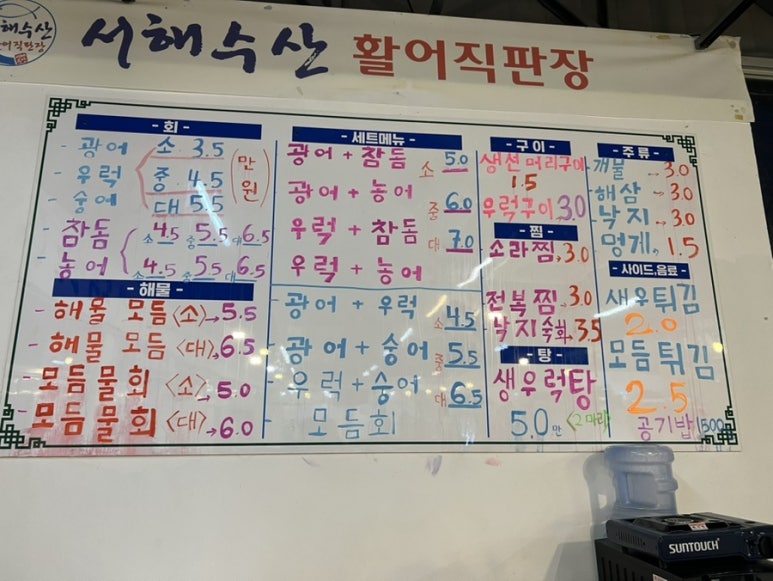 해수산
어직판장
서해수산 활어직판장
- 회 -
- 광어 소 3.5
- 우럭 중 4.5 (만원)
- 숭어 대 5.5
- 참돔 소 4.5 중 5.5 대 6.5
- 농어 소 4.5 중 5.5 대 6.5
- 해물 -
- 해물 모듬 <소> → 5.5
- 해물 모듬 <대> → 6.5
- 모듬물회 <소> → 5.0
- 모듬물회 <대> → 6.0
- 세트메뉴 -
광어 + 참돔 소 5.0
광어 + 농어 중 6.0
우럭 + 참돔 대 7.0
우럭 + 농어
- 광어 + 우럭 소 4.5
- 광어 + 숭어 중 5.5
- 우럭 + 숭어 대 6.5
- 모듬회
- 구이 -
생선 머리구이
1.5
우럭구이 3.0
- 찜 -
소라찜 → 3.0
전복찜 → 3.0
낙지숙회 → 3.5
- 탕 -
생우럭탕
5.0만 <2마리>
- 주류 -
개불 → 3.0
해삼 → 3.0
낙지 → 3.0
멍게 → 1.5
- 사이드,음료 -
새우튀김
2.0
모듬튀김
2.5
공기밥 1500
SUNTOUCH